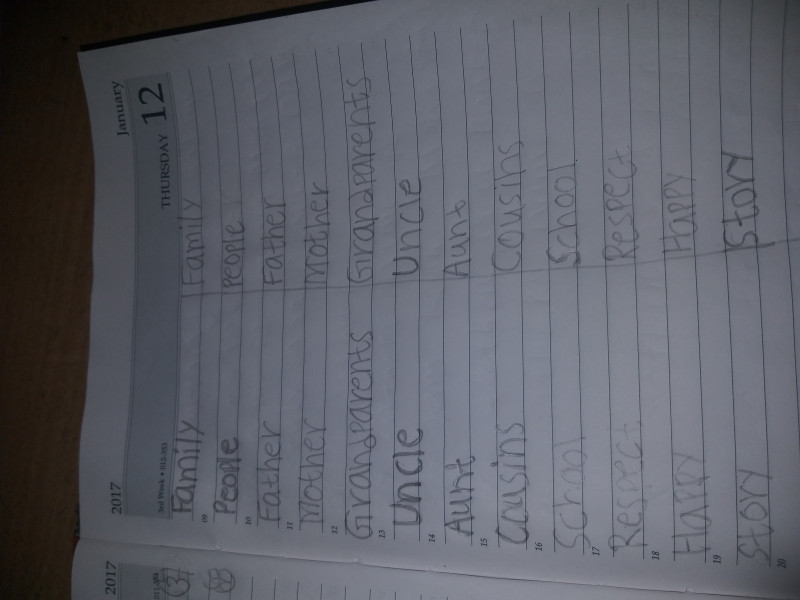 2017 January
3rd Week • 012-353 THURSDAY 12
Family Family
09
People People
10
Father Father
11
Mother Mother
12
Grandparents Grandparents
13
Uncle Uncle
14
Aunt Aunt
15
Cousins Cousins
16
School School
17
Respect Respect
18
Happy Happy
19
Story Story
20
2017